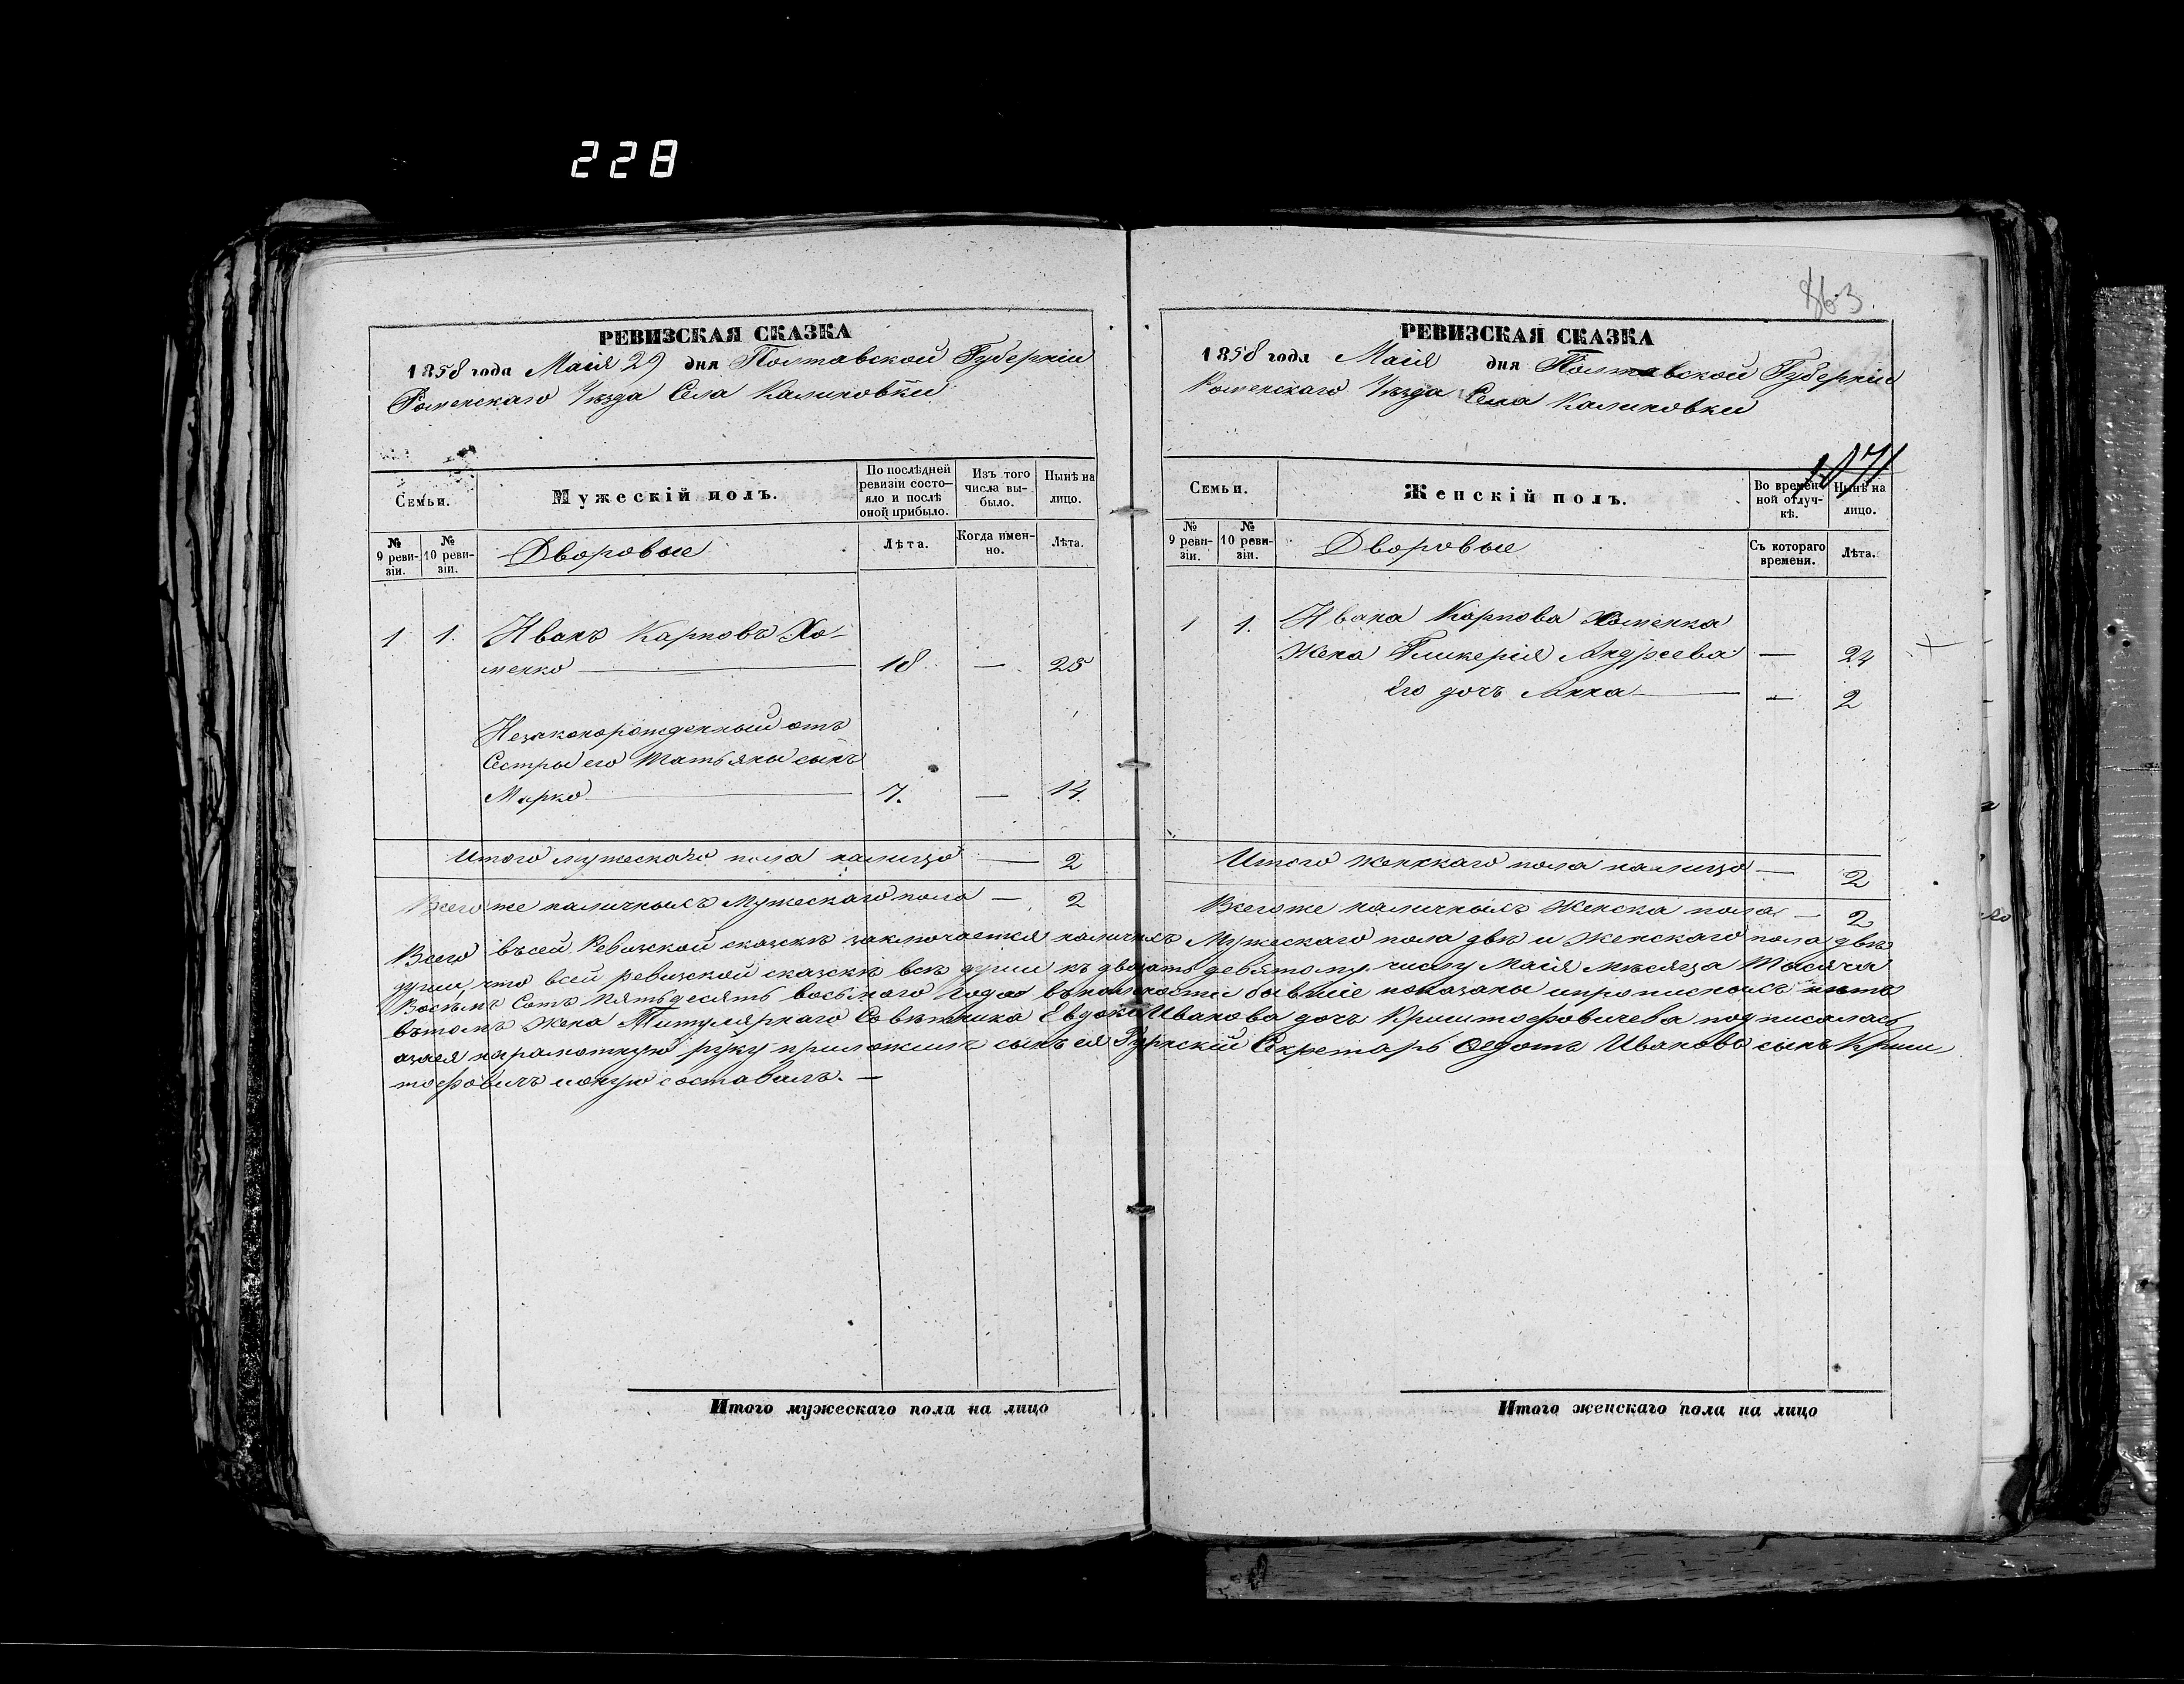 228
863
РЕВИЗСКАЯ СКАЗКА
1858 года Маія 29 дня Полтавской Губерніи
Роменскаго Уѣзда Села Калиновки
Семьи.
Мужескій полъ.
По послѣдней ревизіи состояло и послѣ оной прибыло.
Изъ того числа выбыло.
Нынѣ на лицо.
№ 9 ревизіи.
№ 10 ревизіи.
Дворовые
Лѣта.
Когда именно.
Лѣта.
1 1. Иванъ Карповъ Хо-
менко — 18 — 25
Незаконорожденный отъ
Сестры его Татьяны сынъ
Марко — 7. — 14.
Итого мужескаго пола налицо — 2
Всего же наличныхъ Мужескаго пола — 2
РЕВИЗСКАЯ СКАЗКА
1858 года Маія дня Полтавской Губерніи
Роменскаго Уѣзда Села Калиновки
1071
Семьи.
Женскій полъ.
Во временной отлучкѣ.
Нынѣ на лицо.
№ 9 ревизіи.
№ 10 ревизіи.
Дворовые
Съ котораго времени.
Лѣта.
1 1. Ивана Карпова Хоменка
Жена Гликерія Андреева — 24
Его дочь Анна — 2
Итого женскаго пола налицо — 2
Всего же наличныхъ Женска пола — 2
Всего въ сей Ревизской сказкѣ заключается наличныхъ Мужескаго пола двѣ и Женскаго пола двѣ
души, что всей ревизской сказскѣ всѣ души къ двадцать девятому числу Маія мѣсяца Тысяча
Восемъ Сотъ Пятьдесять восьмого Года въ наличности бывшіе показаны и прописныхъ нѣтъ
вътомъ Жена Титулярнаго Совѣтника Евдокія Иванова дочь Криштофовичева подписалась
азаея неграмотную руку приложилъ сынъ ея Губернскій Секретарь Федотъ Ивановъ сынъ Криш
тофовичъ и оную составилъ. —
Итого мужескаго пола на лицо
Итого женскаго пола на лицо